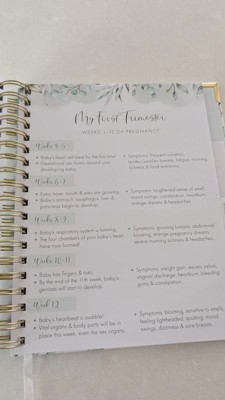 My First Trimester
WEEKS 1-12 OF PREGNANCY
Weeks 4-5
• Baby's heart will begin to
• Gestational sac forms around your
developing baby.
• Symptoms: frequent urination,
tender/swollen breasts, fatigue, morning
sickness & food aversions.
Weeks 6-7
• Eyes, nose, mouth & ears are growing.
• Baby's stomach, esophagus, liver &
pancreas begin to develop.
• Symptoms: heightened sense of smell,
mood swings, constipation, heartburn,
strange dreams & headaches.
Weeks 8-9
• Baby's respiratory system is forming.
• The four chambers of your baby's heart
have now formed!
• Symptoms: growing breasts, abdominal
bloating, strange pregnancy dreams,
severe morning sickness & headaches.
Weeks 10-11
• Baby has fingers & toes.
• By the end of the 11th week, baby's
genitals will start to develop.
• Symptoms: weight gain, excess saliva,
vaginal discharge, heartburn, bleeding
gums & constipation.
Week 12
• Baby's heartbeat is audible!
• Vital organs & body parts will be in
place this week, even the sex organs.
• Symptoms: bloating, sensitive to smells,
feeling lightheaded, spotting, mood
swings, dizziness & sore breasts.